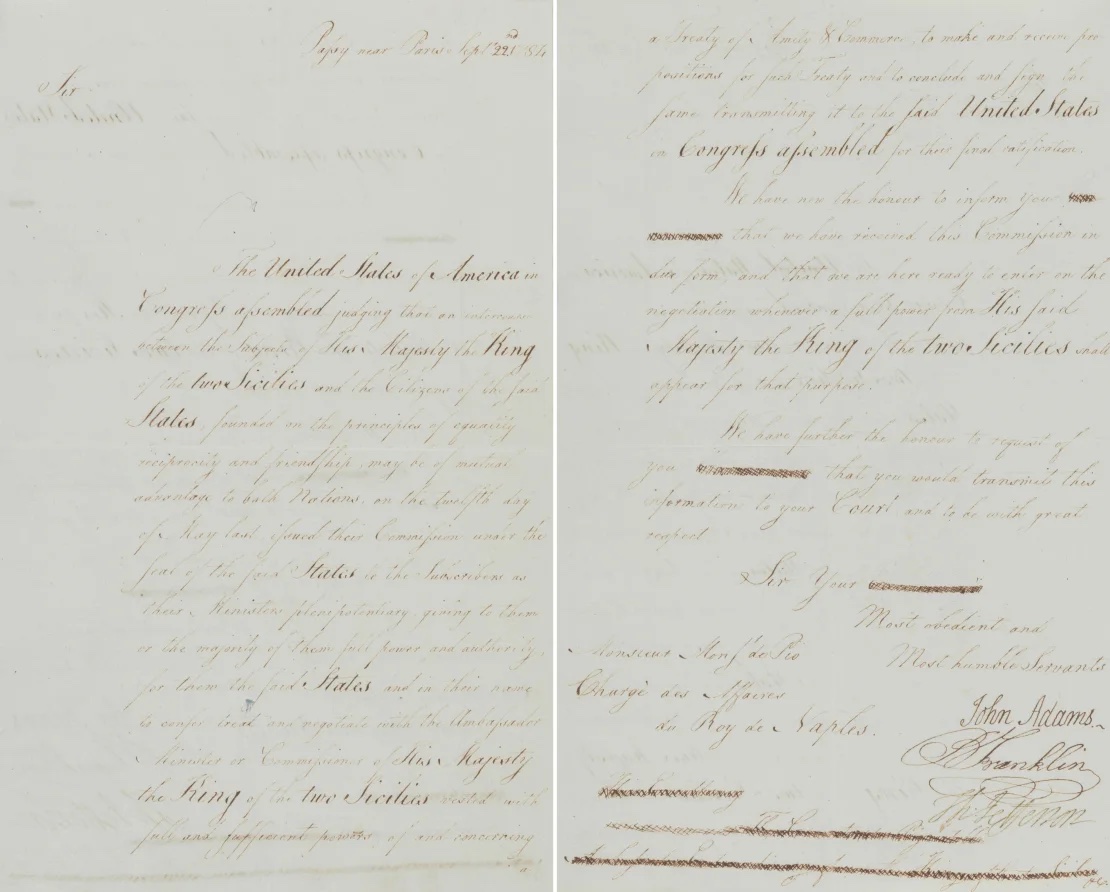 Passy near Paris Sept. 22nd 1784
Sir
The United States of America in
Congress assembled judging that an intercourse
between the Subjects of His Majesty the King
of the two Sicilies and the Citizens of the said
States, founded on the principles of equality
reciprocity and friendship, may be of mutual
advantage to both Nations, on the twelfth day
of May last, issued their Commission under the
seal of the said States to the Subscribers as
their Ministers plenipotentiary, giving to them
or the majority of them full power and authority,
for them the said States and in their name
to confer, treat and negotiate with the Ambassador
Minister or Commissioner of His Majesty
the King of the two Sicilies vested with
full and sufficient powers, of and concerning
a
a Treaty of Amity & Commerce, to make and receive pro
positions for such Treaty and to conclude and sign the
same transmitting it to the said United States
in Congress assembled for their final ratification.
We have now the honour to inform you
that we have received this Commission in
due form, and that we are here ready to enter on the
negotiation whenever a full power from His said
Majesty the King of the two Sicilies shall
appear for that purpose.
We have further the honour to request of
you that you would transmit this
information to your Court, and to be with great
respect
Sir Your
Most obedient and
Most humble Servants
Monsieur Monsr. de Pio
Chargé des Affaires
du Roy de Naples.
John Adams
B Franklin
Th: Jefferson